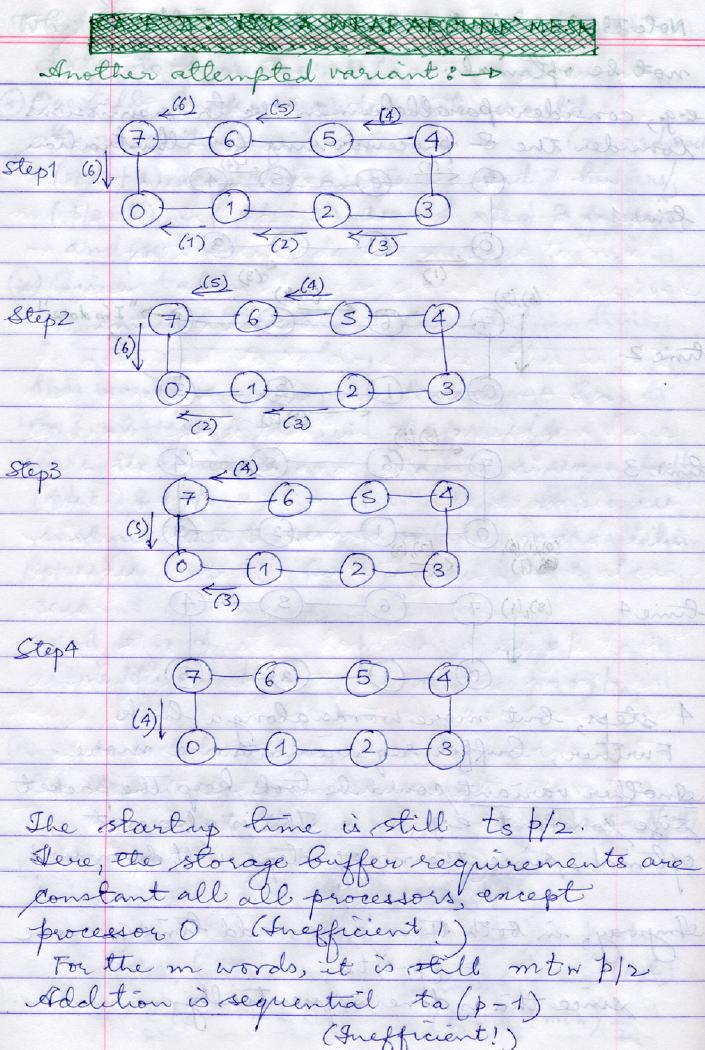 FOR A WRAPAROUND MESH
Another attempted variant: →
(6) (5) (4)
7 6 5 4
Step1 (6)
0 1 2 3
(1) (2) (3)
(5) (4)
Step2 7 6 5 4
(6)
0 1 2 3
(2) (3)
Step3 (4)
7 6 5 4
(5)
0 1 2 3
(3)
Step4
7 6 5 4
(4)
0 1 2 3
The startup time is still ts p/2.
Here, the storage buffer requirements are
constant all all processors, except
processor 0 (Inefficient!)
For the m words, it is still mtw p/2
Addition is sequential ta (p-1)
(Inefficient!)